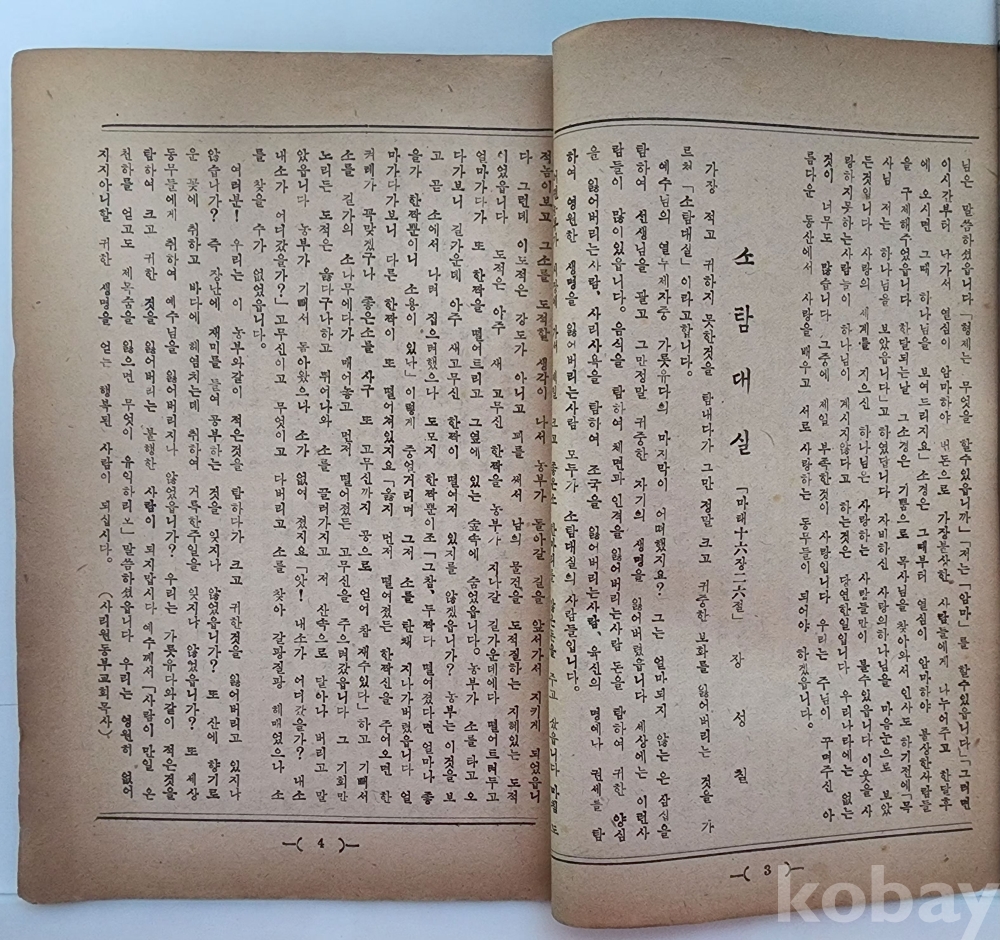 님은 말씀하셨읍니다 「형제는 무엇을 할수있읍니까」「저는 「암마」를 할수있읍니다」「그러면
이시간부터 나가서 열심이 암마하야 번돈으로 가장불상한 사람들에게 나누어주고 한달후
에 오시면 그때 하나님을 보여드리지요」 소경은 그때부터 열심이 암마하야 불상한사람들
을 구제해주었읍니다 한달되는날 그소경은 기쁨으로 목사님을 찾아와서 인사도 하기전에 「목
사님 저는 하나님을 보았읍니다」고 하였답니다 자비하신 사랑의하나님을 마음눈으로 보았
든것입니다 사랑의 세계를 지으신 하나님은 사랑하는 사람들만이 볼수있읍니다 이웃을사
랑하지못하는사람들이 하나님이 게시지않다고 하는것은 당연한일입니다 우리나라에는 없는
것이 너무도 많습니다 그중에 제일 부족한것이 사랑입니다 우리는 주님이 꾸며주신 아
름다운 동산에서 사랑을 배우고 서로 사랑하는 동무들이 되어야 하겠읍니다。
소탐대실 「마태十六장二六절」 장성칠
가장 적고 귀하지 못한것을 탐내다가 그만 정말 크고 귀중한 보화를 잃어버리는 것을 가
르처 「소탐대실」이라고합니다。
예수님의 열두제자중 가룟유다의 마지막이 어떠했지요? 그는 얼마되지 않는 은 삼십을
탐하여 선생님을 팔고 그만정말 귀중한 자기의 생명을 잃어버렸읍니다 세상에는 이런사
람들이 많이있읍니다。음식을 탐하여 체면과 인격을 잃어버리는사람 돈을 탐하여 귀한 양심
을 잃어버리는사람, 사리사욕을 탐하여 조국을 잃어버리는사람, 육신의 명예나 권세를 탐
하여 영원한 생명을 잃어버리는사람 모두가 소탐대실의 사람들입니다。
3
적놈이보고 그소를 도적할 생각이 나서 농부가 돌아갈 길을 앞서가서 지키게 되었읍니
다 그런데 이도적은 강도가 아니고 꾀를 써서 남의 물건을 도적질하는 지혜있는 도적
이었읍니다 도적은 아주 새 고무신 한짝을 농부가 지나갈 길가운데에다 떨어트려두고
얼마가다가 또 한짝을 떨어트리고 그옆에 있는 숲속에 숨었읍니다。농부가 소를 타고 오
다가보니 길가운데 아주 새고무신 한짝이 떨어저 있지를 않겠읍니가? 농부는 이것을 보
고 곧 소에서 나려 집으려했으나 도모지 한짝뿐이조 「그참, 두짝다 떨어졌다면 얼마나 좋
을가 한짝뿐이니 소용이 있나」 이렇게 중얼거리며 그저 소를 탄채 지나가버렸읍니다 얼
마가다가보니 다른 한짝이 또 떨어져있지요 「옳지 먼저 떨어졌든 한짝신을 주어오면 한
켜레가 꼭맞겠구나 좋은소를 사구 또 고무신까지 공으로 얻어 참 재수있다」하고 기뻐서
소를 길가의 소나무에다가 매어놓고 먼저 떨어졌든 고무신을 주으러갔읍니다 그 기회만
노리든 도적은 옳다구나하고 튀어나와 소를 끌러가지고 저 산속으로 달아나 버리고 말
았읍니다 농부가 기뻐서 돌아왔으나 소가 없어 졌지요 「앗! 내소가 어디갔을가? 내소
내소가 어디갔을가?」고무신이고 무엇이고 다버리고 소를 찾아 갈팡질팡 헤매었으나 소
를 찾을 수가 없었읍니다。
여러분! 우리는 이 농부와같이 적은것을 탐하다가 크고 귀한것을 잃어버리고 있지나
않습니가? 즉 장난에 재미를 들여 공부하는 것을 잊지나 않었읍니가? 또 산에 향기로
운 꽃에 취하고 바다에 헤염치는데 취하여 거룩한주일을 잊지나 않었읍니가? 또 세상
동무들에게 취하여 예수님을 잃어버리지나 않었읍니가? 우리는 가룟유다와같이 적은것을
탐하여 크고 귀한 것을 잃어버리는 불행한 사람이 되지맙시다 예수께서 「사람이 만일 온
천하를 얻고도 제목숨을 잃으면 무엇이 유익하리오」 말씀하셨읍니다 우리는 영원히 없어
지지아니할 귀한 생명을 얻는 행복된 사람이 되십시다。 (사리원동부교회목사)
4
kobay